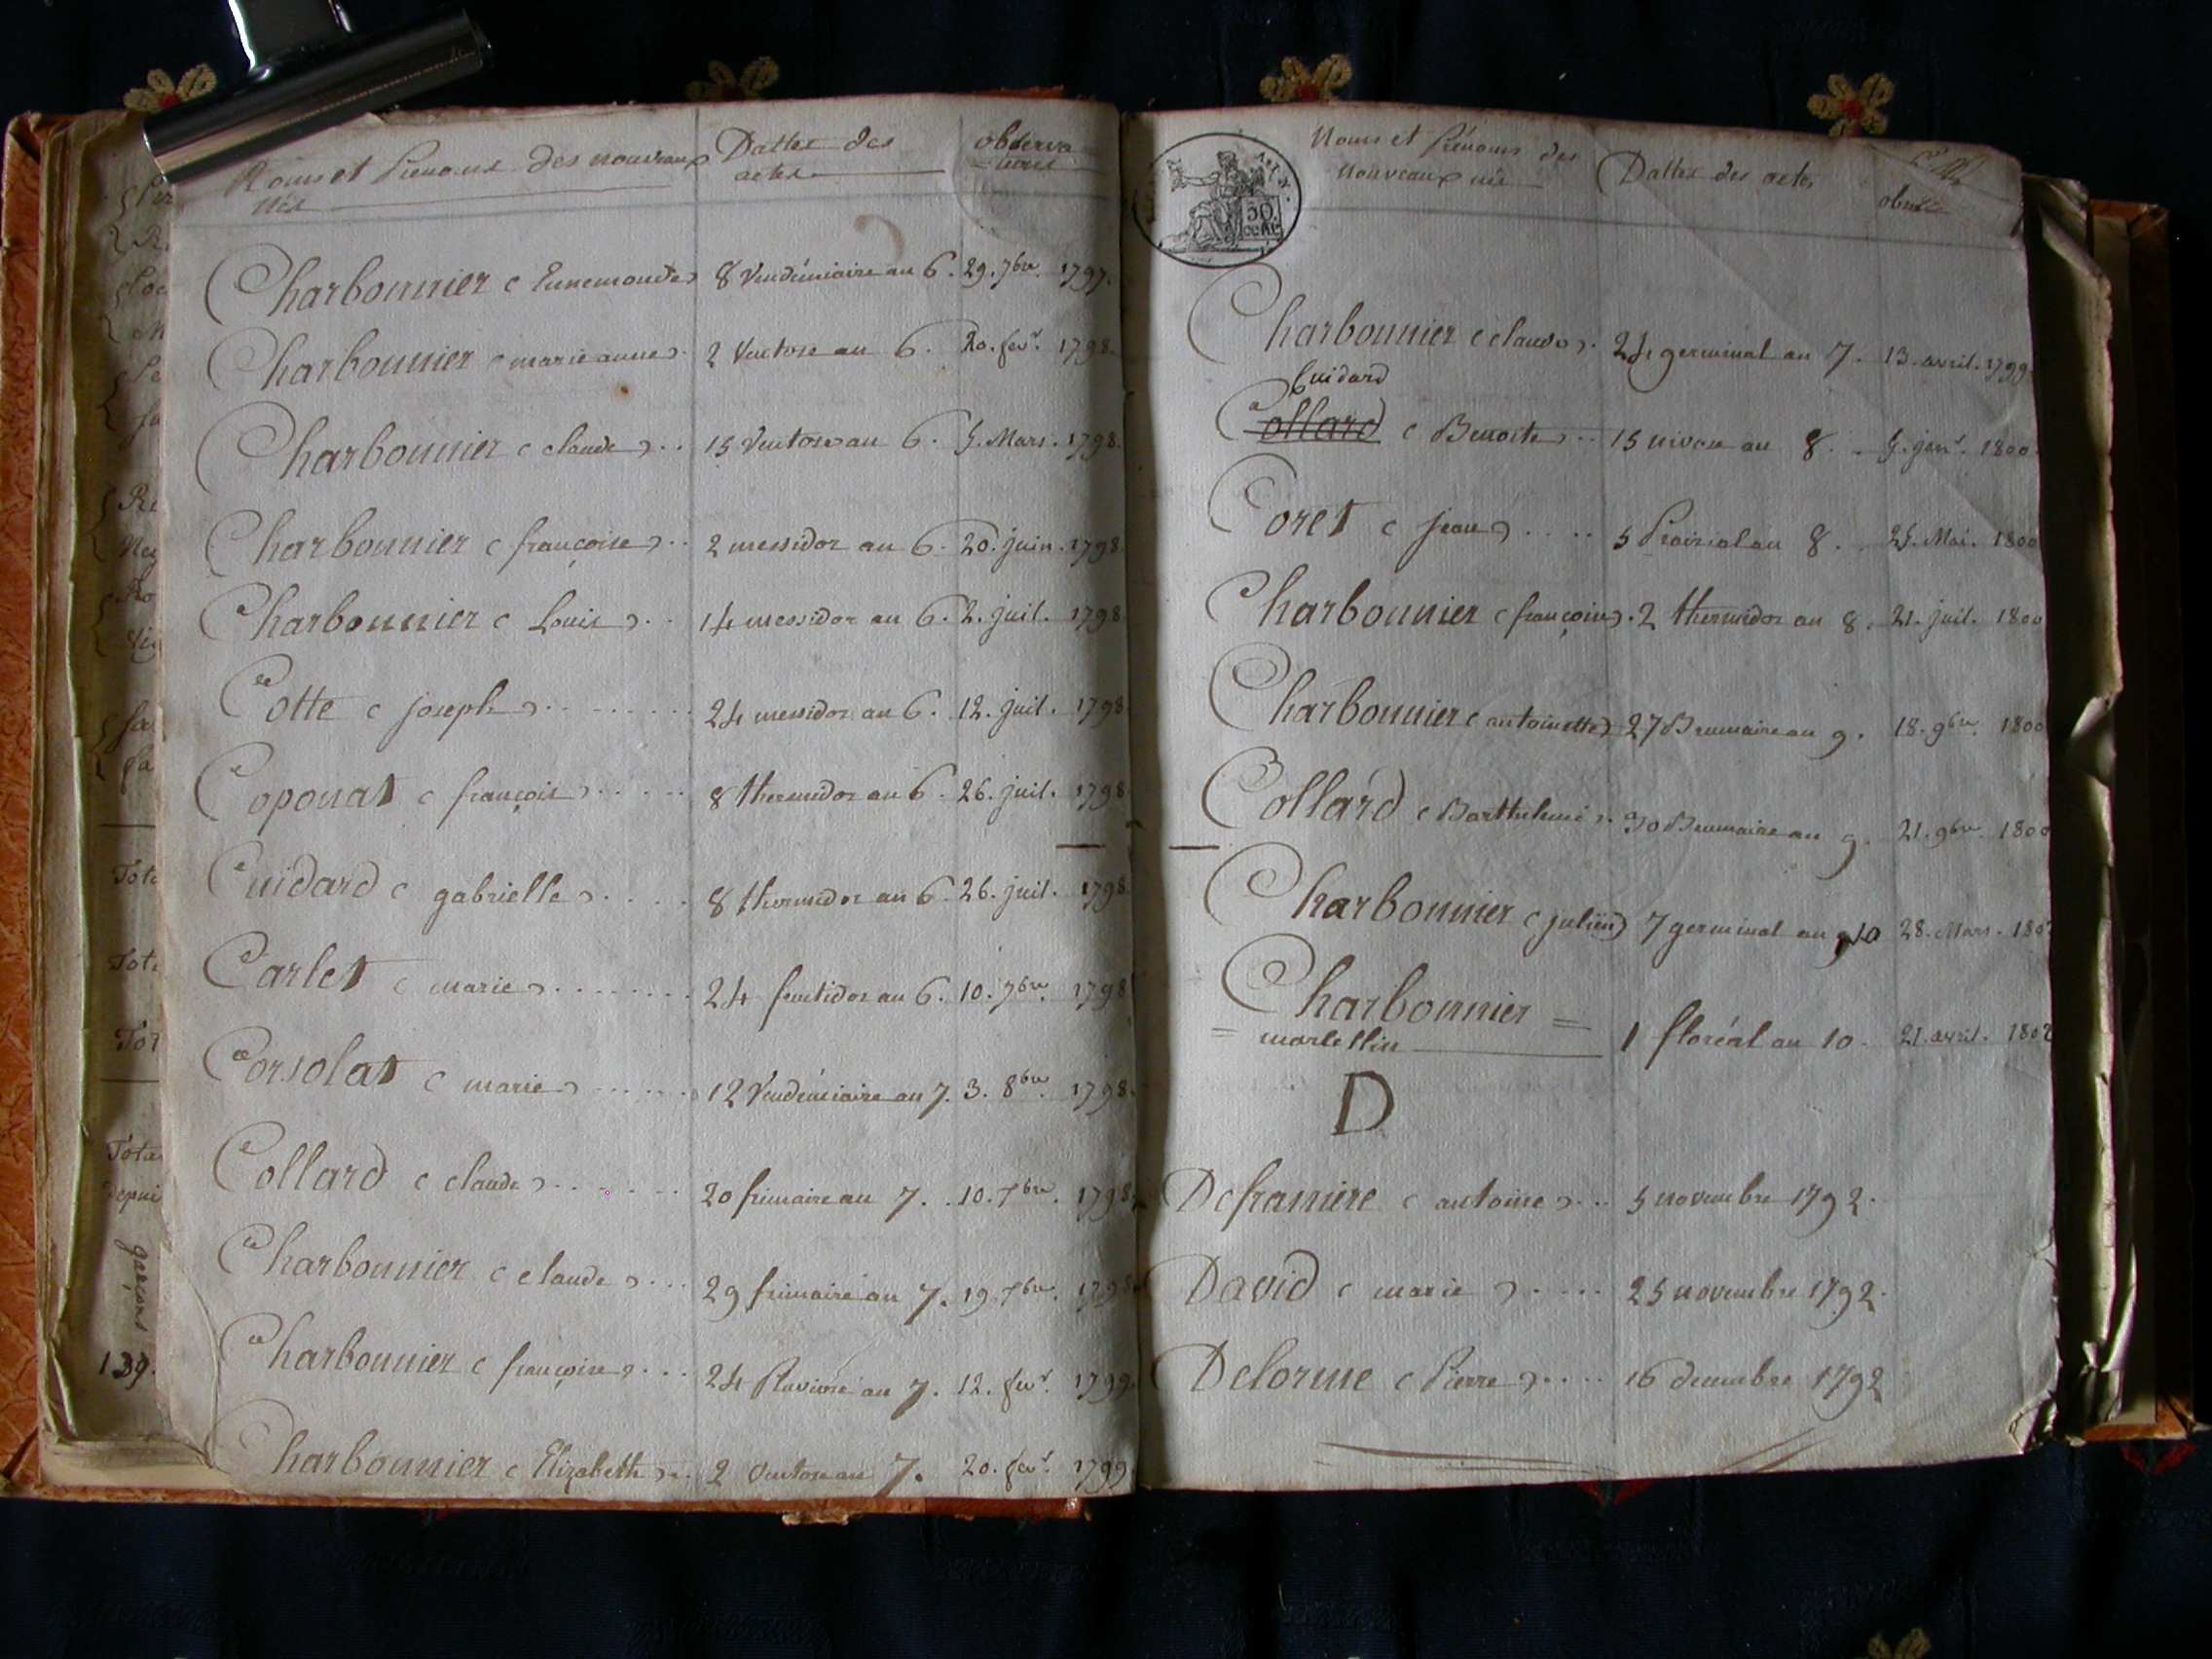 Noms et Prénoms des nouveaux
nés
Dattes des
actes
observa
tions
Charbonnier ( Ennemonde) 8 Vendémiaire an 6. 29. 7bre. 1797.
Charbonnier ( marie anne). 2 Ventose an 6. 20. fevr. 1798.
Charbonnier ( claude ) . . 15 Ventose an 6. 5. Mars. 1798.
Charbonnier ( françoise ) . . 2 messidor an 6. 20. juin. 1798.
Charbonnier ( Louis ) . . 14 messidor an 6. 2. juil. 1798
Cotte ( joseph ) . . . . . . . 24 messidor an 6. 12. juil. 1798
Coponat ( françois ) . . . . . 8 thermidor an 6. 26. juil. 1798.
Cuidard ( gabrielle ) . . . . 8 thermidor an 6. 26. juil. 1798.
Carlet ( marie ) . . . . . . . . 24 fructidor an 6. 10. 7bre. 1798
Corsolat ( marie ) . . . . . . 12 Vendémiaire an 7. 3. 8bre. 1798.
Collard ( claude ) . . . . . . 20 frimaire an 7. . 10. Xbre. 1798.
Charbonnier ( claude ) . . . 29 frimaire an 7. 19. Xbre. 1798.
Charbonnier ( françoise ) . . . 24 Pluviose an 7. 12. fevr. 1799.
Charbonnier ( Elizabeth ) . . 2 Ventose an 7. 20. fevr. 1799
Tot
Tot
Tot
Tota
depui
garçons
139.
50.
cent.
Noms et Prénoms des
nouveaux nés
Dattes des actes
Charbonnier ( claude ). 24 germinal an 7. 13. avril. 1799.
Cuidard
Collard ( Benoite ) . . 15 nivose an 8. . 5. janr. 1800.
Coret ( jean ) . . . . 5 Prairial an 8. . 25. Mai. 1800
Charbonnier ( françoise ). 2 thermidor an 8. 21. juil. 1800
Charbonnier ( antoinette ) 27 Brumaire an 9. 18. 9bre. 1800
Collard ( Barthelemi ). 30 Brumaire an 9. 21. 9bre. 1800
Charbonnier ( julien ) 7 germinal an 10 28. Mars. 1802
Charbonnier =
= marcellin 1 floréal an 10. 21. avril. 1802
D
Defraniere ( antoine ) . . . 5 novembre 1792.
David ( marie ) . . . . 25 novembre 1792.
Delorme ( Pierre ) . . . . 16 decembre 1792